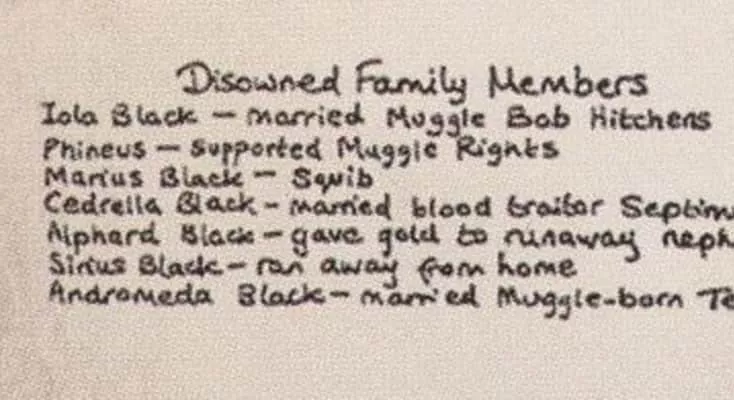 Disowned Family Members
Iola Black — married Muggle Bob Hitchens
Phineus — supported Muggle Rights
Marius Black — Squib
Cedrella Black - married blood traitor Septim
Alphard Black - gave gold to runaway neph
Sirius Black - ran away from home
Andromeda Black - married Muggle-born Te